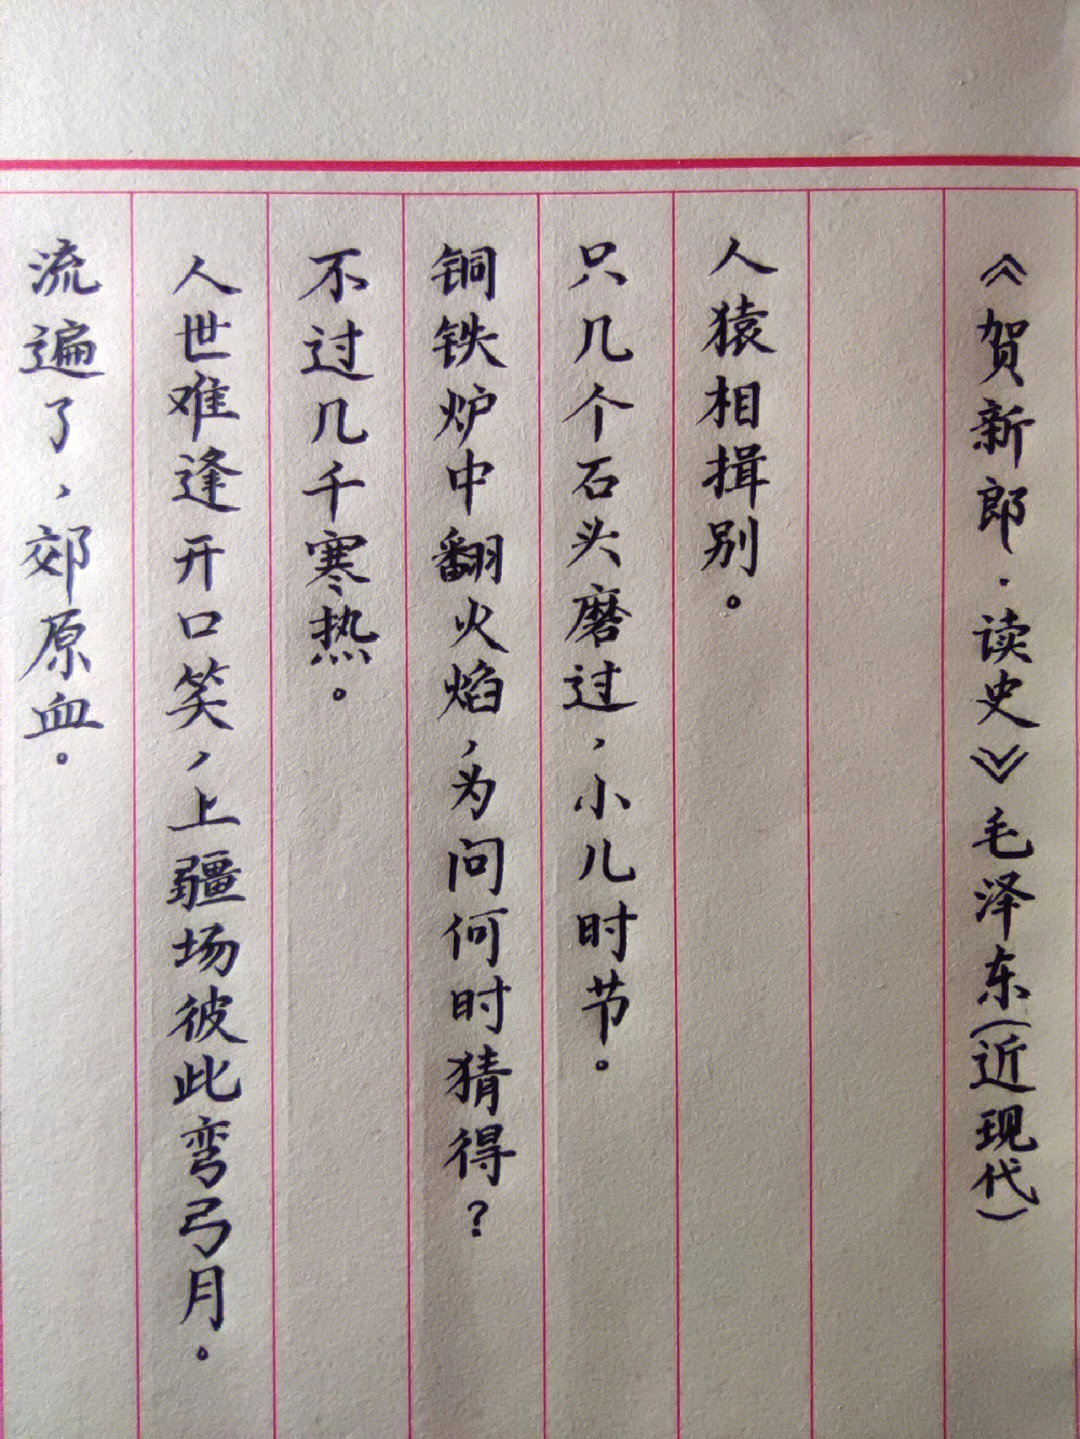 《贺新郎·读史》毛泽东(近现代)
人猿相揖别。
只几个石头磨过,小儿时节。
铜铁炉中翻火焰,为问何时猜得?
不过几千寒热。
人世难逢开口笑,上疆场彼此弯弓月。
流遍了,郊原血。